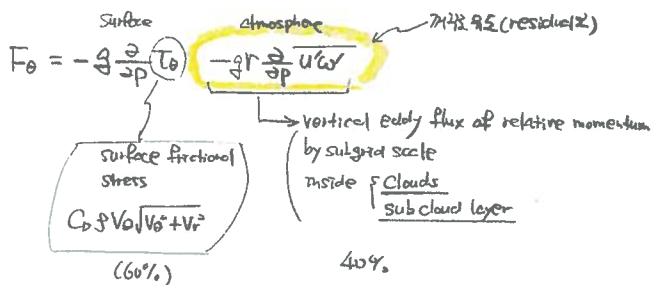 Surface
atmosphere
(residual로)
F_θ = -g ∂/∂p τ_θ -gr ∂/∂p \overline{u'ω'}
vertical eddy flux of relative momentum
by subgrid scale
inside { Clouds
sub cloud layer
surface frictional
stress
C_D ρ V_θ √(V_θ² + V_r²)
(60%)
40%